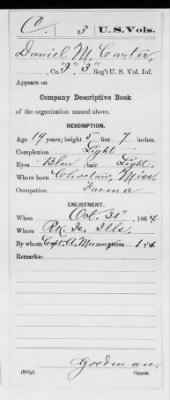 C. 3 U.S. Vols.
Daniel M. Carter,
, Co. "I", 3" Reg't U. S. Vol. Inf.
Appears on
Company Descriptive Book
of the organization named above.
DESCRIPTION.
Age 19 years; height 5 feet 7 inches.
Complexion Light
Eyes Blue; hair Light.
Where born Miss.
Occupation Farmer
ENLISTMENT.
When Oct. 31", 1864.
Where Rk. Is. Ills.
By whom Capt. 
Remarks:
Goodman,
Copyist.